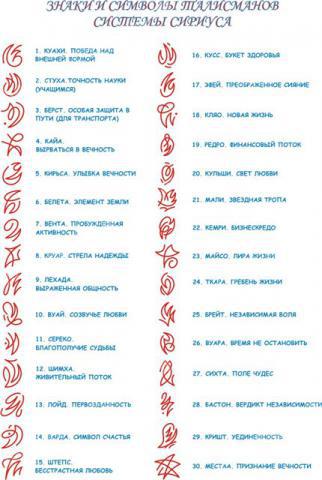 ЗНАКИ И СИМВОЛЫ ТАЛИСМАНОВ
СИСТЕМЫ СИРИУСА
1. КУАХИ. ПОБЕДА НАД
ВНЕШНЕЙ ФОРМОЙ
2. СТУХА.ТОЧНОСТЬ НАУКИ
(УЧАЩИМСЯ)
3. БЕРСТ. ОСОБАЯ ЗАЩИТА В
ПУТИ (ДЛЯ ТРАНСПОРТА)
4. КАЙА.
ВЫРВАТЬСЯ В ВЕЧНОСТЬ
5. КИРЬСА. УЛЫБКА ВЕЧНОСТИ
6. БЕЛЕТА. ЭЛЕМЕНТ ЗЕМЛИ
7. ВЕНТА. ПРОБУЖДЕННАЯ
АКТИВНОСТЬ
8. КРУАР. СТРЕЛА НАДЕЖДЫ
9. ЛЕХАДА.
ВЫРАЖЕННАЯ ОБЩНОСТЬ
10. ВУАЙ. СОЗВУЧЬЕ ЛЮБВИ
11. СЕРЕКО.
БЛАГОПОЛУЧИЕ СУДЬБЫ
12. ШИМХА.
ЖИВИТЕЛЬНЫЙ ПОТОК
13. ЛОЙД. ПЕРВОЗДАННОСТЬ
14. ВАРДА. СИМВОЛ СЧАСТЬЯ
15. ШТЕПС.
БЕССТРАСТНАЯ ЛЮБОВЬ
16. КУСС. БУКЕТ ЗДОРОВЬЯ
17. ЭВЕЙ. ПРЕОБРАЖЕННОЕ СИЯНИЕ
18. КЛЯО. НОВАЯ ЖИЗНЬ
19. РЕДРО. ФИНАНСОВЫЙ ПОТОК
20. КУЛЬШИ. СВЕТ ЛЮБВИ
21. МАЛИ. ЗВЕЗДНАЯ ТРОПА
22. КЕМРИ. БИЗНЕСКРЕДО
23. МАЙСО. ЛИРА ЖИЗНИ
24. ТКАРА. ГРЕБЕНЬ ЖИЗНИ
25. БРЕЙТ. НЕЗАВИСИМАЯ ВОЛЯ
26. ВУАРА. ВРЕМЯ НЕ ОСТАНОВИТЬ
27. СИХТА. ПОЛЕ ЧУДЕС
28. БАСТОН. ВЕРДИКТ НЕЗАВИСИМОСТИ
29. КРИШТ. УЕДИНЕННОСТЬ
30. МЕСТАА. ПРИЗНАНИЕ ВЕЧНОСТИ